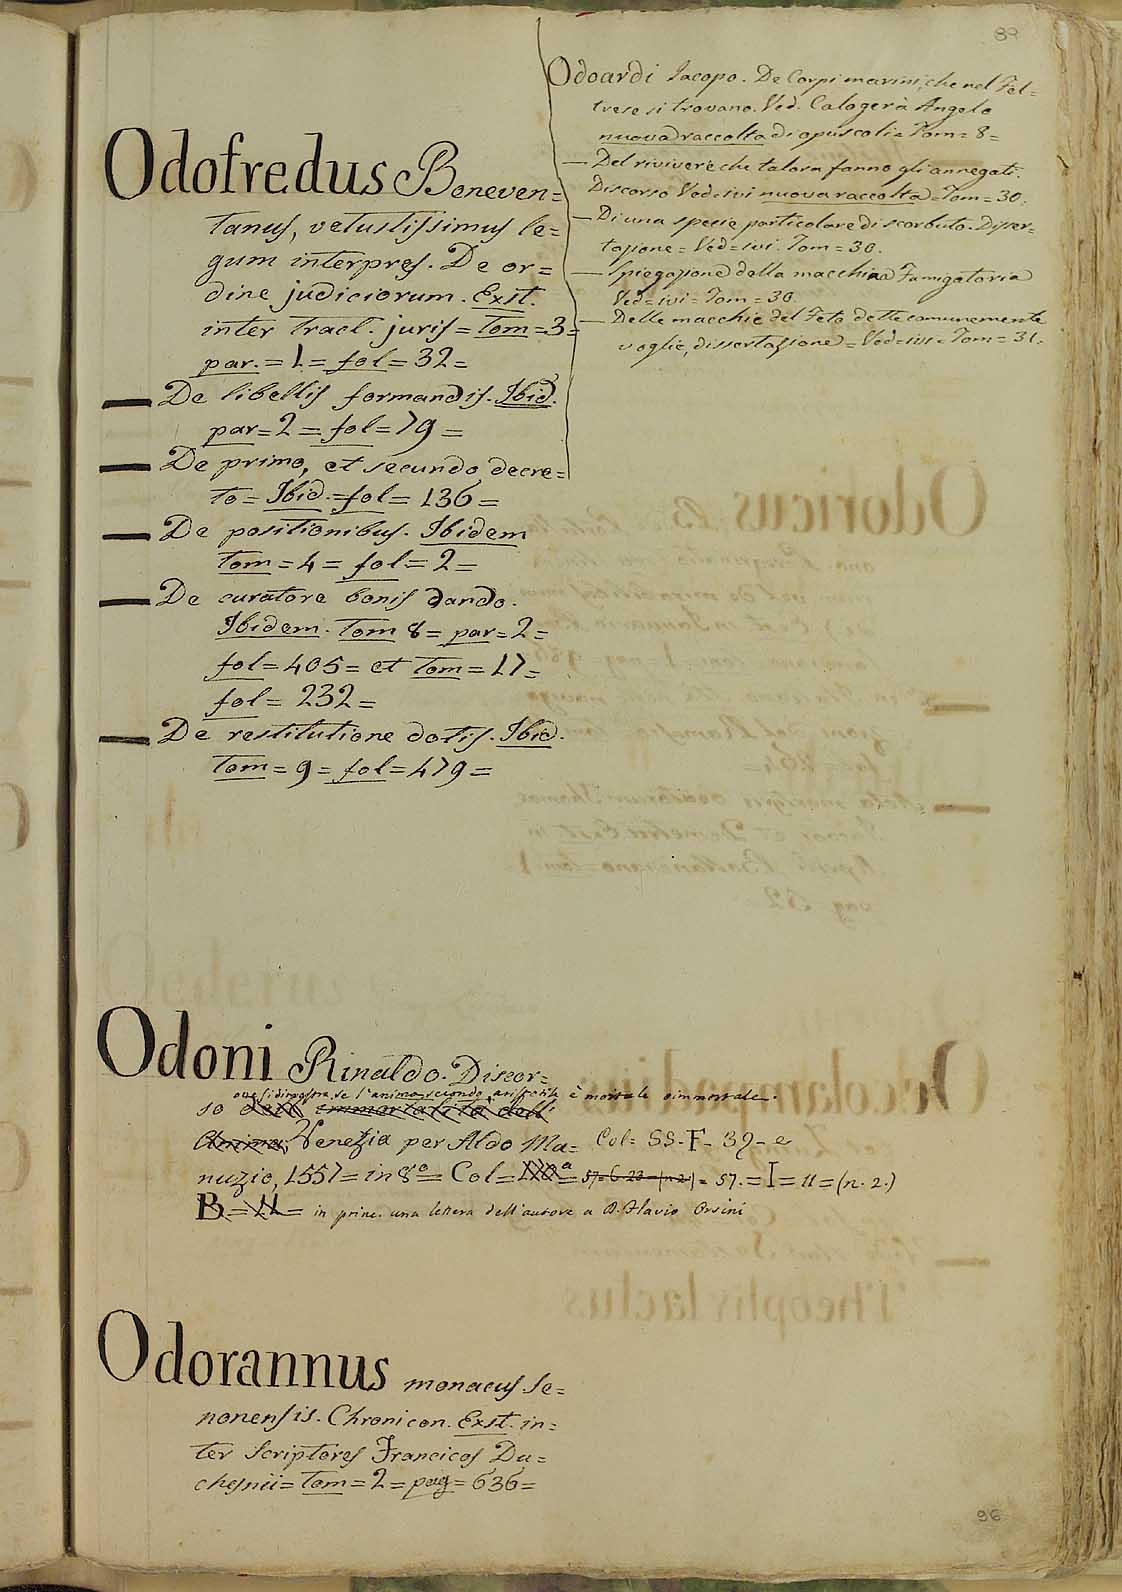 89
Odofredus Beneven=
tanus, vetustissimus le=
gum interpres. De or=
dine judiciorum. Exst.
inter Tract. juris = Tom = 3 =
par. = 1 = fol = 32 =
— De libellis formandis. Ibid.
par = 2 = fol = 79 =
— De primo, et secundo decre=
to = Ibid. = fol = 136 =
— De positionibus. Ibidem
Tom = 4 = fol = 2 =
— De curatore bonis dando.
Ibidem. Tom 8 = par = 2 =
fol = 405 = et Tom = 17 =
fol = 232 =
— De restitutione dotis. Ibid.
Tom = 9 = fol = 479 =
Odoardi Jacopo. De Corpi marini, che nel Fel=
trese si trovano. Ved. Calogerà Angelo
nuova raccolta di opuscoli = Tom = 8 =
— Del rivivere che talora fanno gli annegati.
Discorso Ved = ivi nuova raccolta = Tom = 30.
— Di una specie particolare di scorbuto. Disser=
tazione = Ved = ivi. Tom = 30.
— Spiegazione della macchina Fumigatoria
Ved = ivi = Tom = 30.
— Delle macchie del Feto dette comunemente
voglie, dissertazione = Ved = ivi = Tom = 31.
Odoni Rinaldo. Discor=
ove si dimostra, se l'anima, secondo Aristotile è mortale o immortale.
so dell' immortalità dell'
Anima, Venezia per Aldo Ma= Col = SS - F - 39 - e
nuzio, 1557 = in 8º = Col = = 57 = 6. 23 = (n. 2.) = 57. = I = 11 = (n. 2.)
B = 11 = in princ. una lettera dell'autore a D. Flavio Orsini
Odorannus monacus Se=
nonensis. Chronicon. Exst. in=
ter Scriptores Francicos Du=
chesnii = Tom = 2 = pag = 636 =
96